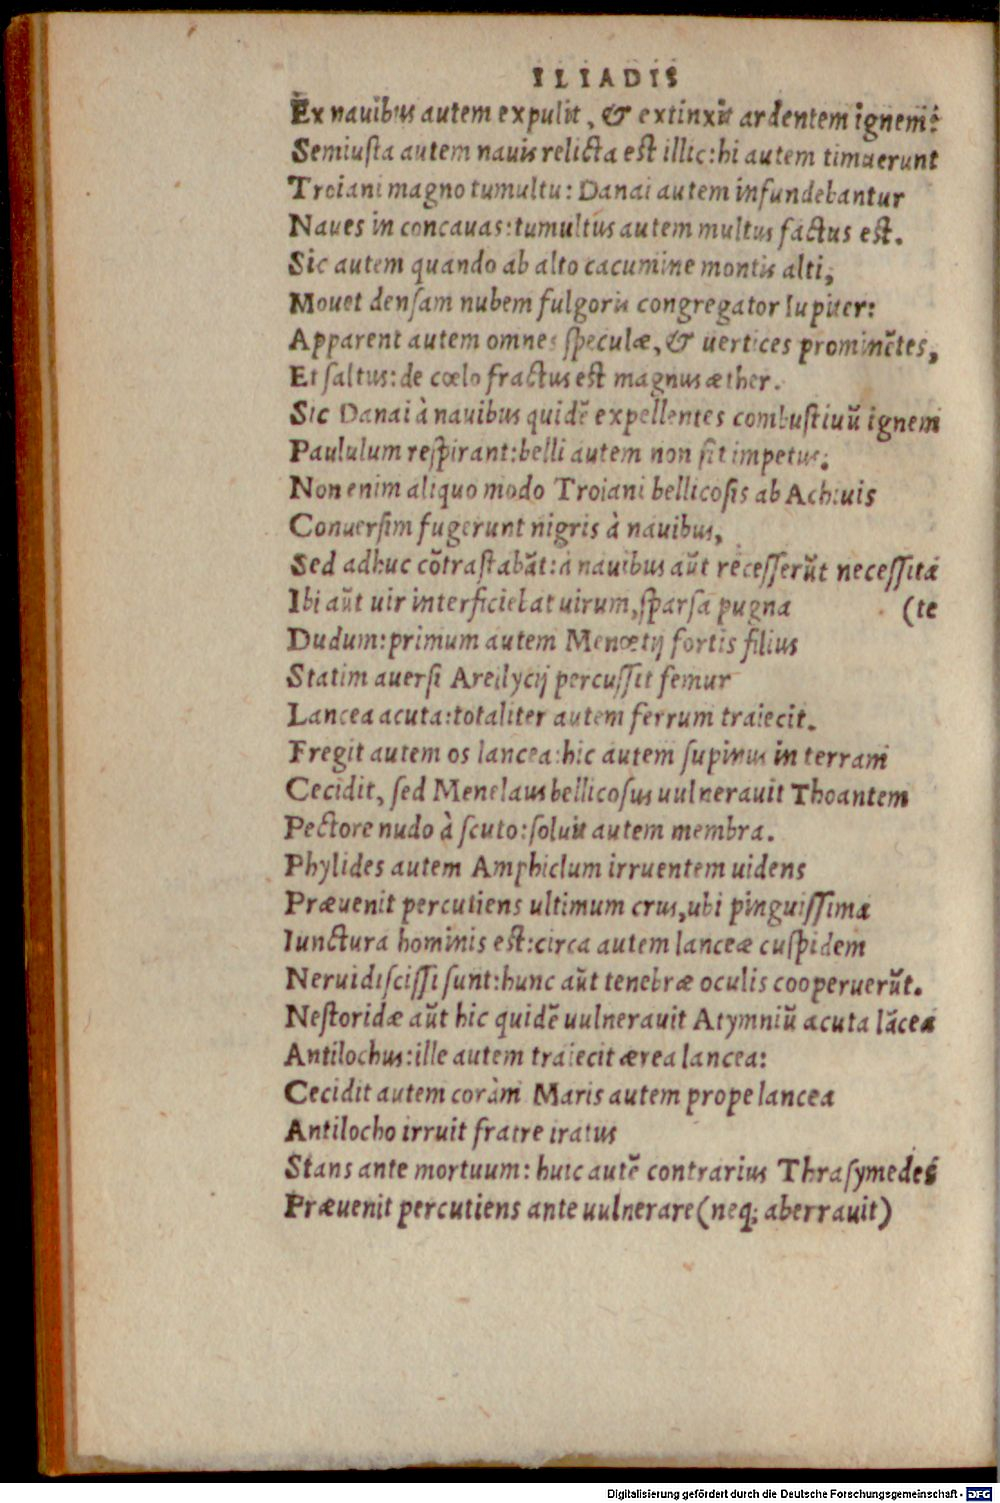 ILIADIS
Ex nauibus autem expulit, & extinxit ardentem ignem:
Semiusta autem nauis relicta est illic: hi autem timuerunt
Troiani magno tumultu: Danai autem infundebantur
Naues in concauas: tumultus autem multus factus est.
Sic autem quando ab alto cacumine montis alti,
Mouet densam nubem fulgoris congregator Iupiter:
Apparent autem omnes speculæ, & uertices prominẽtes,
Et saltus: de cœlo fractus est magnus æther.
Sic Danai à nauibus quidẽ expellentes combustiuũ ignem
Paululum respirant: belli autem non fit impetus:
Non enim aliquo modo Troiani bellicosis ab Achiuis
Conuersim fugerunt nigris à nauibus,
Sed adhuc cõtrastabãt: à nauibus aũt recesserũt necessita
Ibi aũt uir interficiebat uirum, sparsa pugna (te
Dudum: primum autem Menœtij fortis filius
Statim auersi Areilycij percussit femur
Lancea acuta: totaliter autem ferrum traiecit.
Fregit autem os lancea: hic autem supinus in terram
Cecidit, sed Menelaus bellicosus uulnerauit Thoantem
Pectore nudo à scuto: soluit autem membra.
Phylides autem Amphiclum irruentem uidens
Præuenit percutiens ultimum crus, ubi pinguissima
Iunctura hominis est: circa autem lanceæ cuspidem
Nerui discissi sunt: hunc aũt tenebræ oculis cooperuerũt.
Nestoridæ aũt hic quidẽ uulnerauit Atymniũ acuta lãcea
Antilochus: ille autem traiecit ærea lancea:
Cecidit autem coràm Maris autem prope lancea
Antilocho irruit fratre iratus
Stans ante mortuum: huic autẽ contrarius Thrasymedes
Præuenit percutiens ante uulnerare (neq; aberrauit)
Digitalisierung gefördert durch die Deutsche Forschungsgemeinschaft - DFG